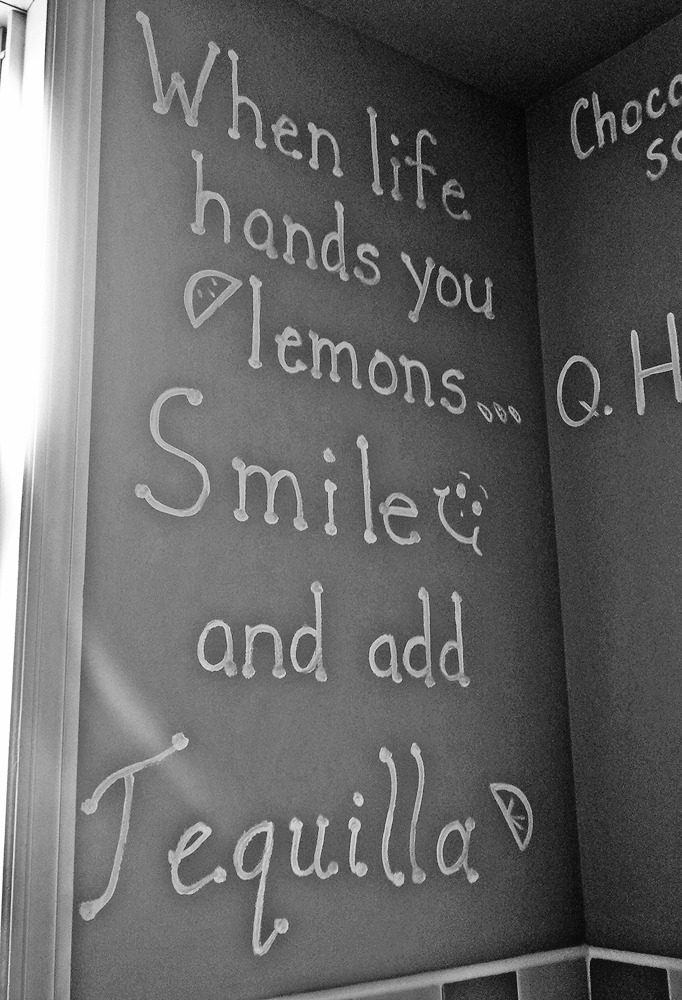 When life
hands you
lemons...
Smile
and add
Tequilla
Q. H